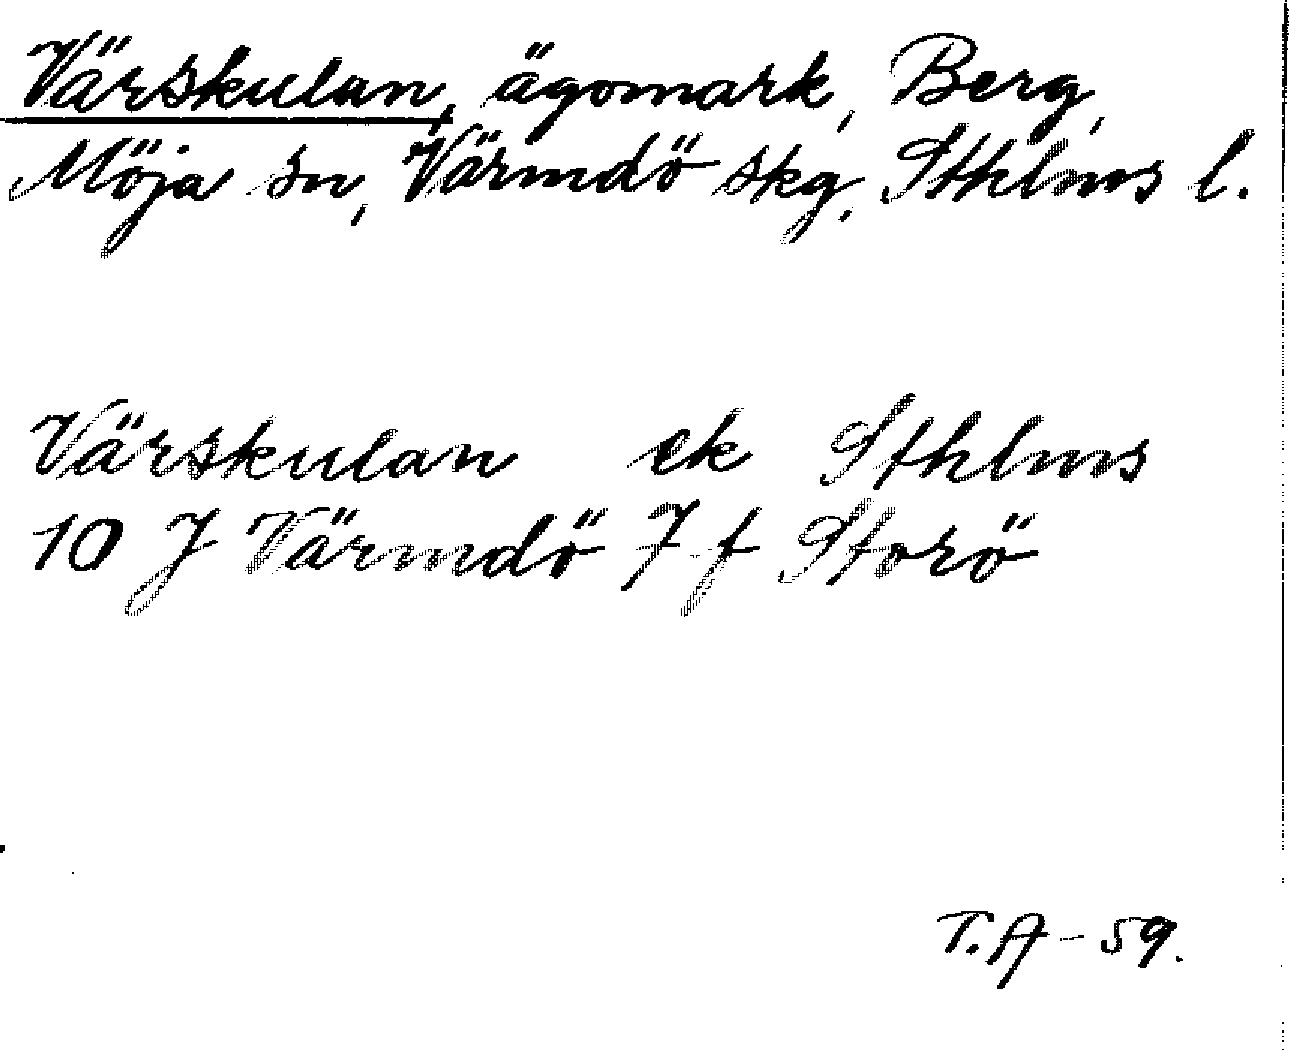 Värskulan, ägomark, Berg,
Möja sn, Värmdö skg, Sthlms l.
Värskulan ek Sthlms
10 J Värmdö 7 f Storö
T.A - 59.